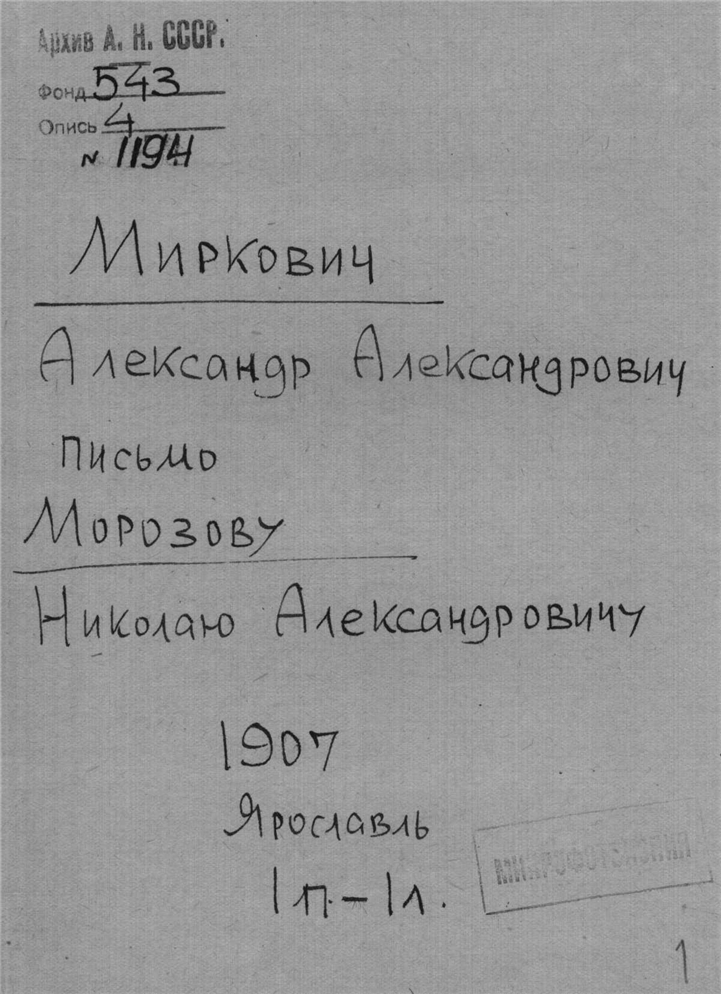 Архив А. Н. СССР.
Фонд 543
Опись 4
№ 1194
Миркович
Александр Александрович
письмо
Морозову
Николаю Александровичу
1907
Ярославль
1п-1л.
1